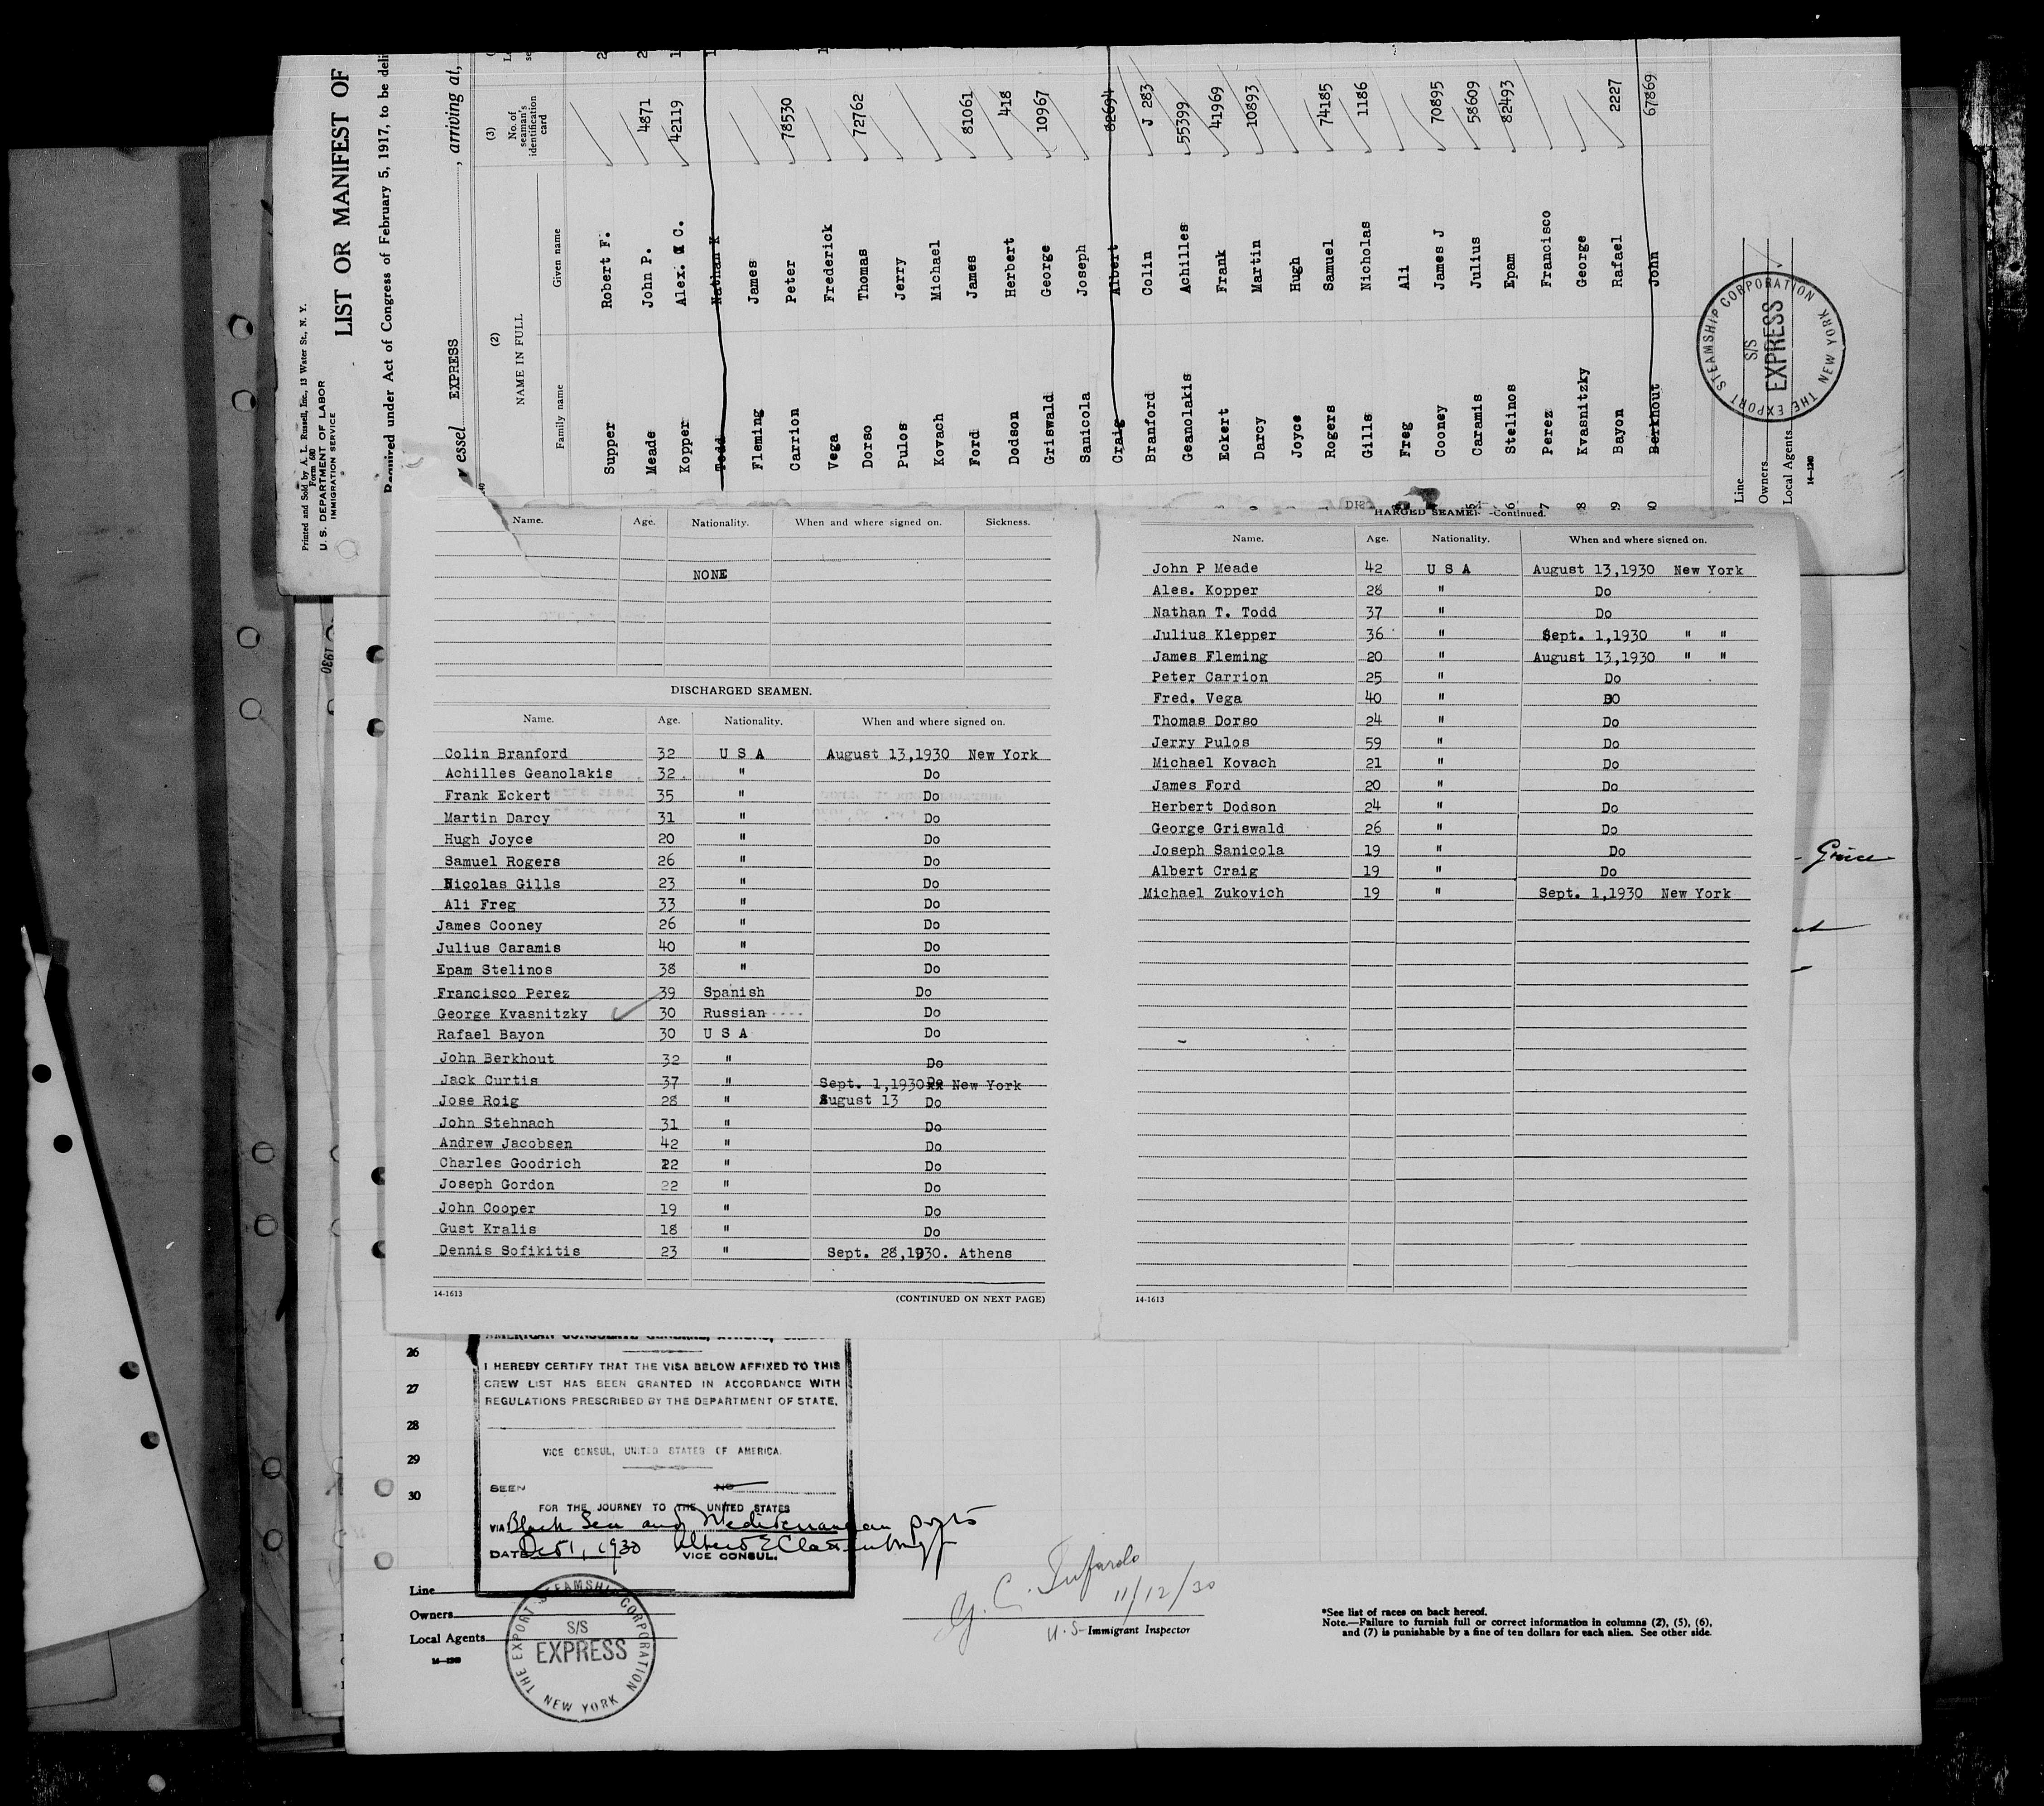 Printed and Sold by A. L. Russell, Inc., 13 Water St., N. Y.
Form 680
U. S. DEPARTMENT OF LABOR
IMMIGRATION SERVICE
LIST OR MANIFEST OF
Required under Act of Congress of February 5, 1917, to be deli
essel EXPRESS , arriving at,
(2) (3)
NAME IN FULL No. of seaman's identification card
Family name Given name
Supper Robert F.
Meade John P. 4871
Kopper Alex. C. 42119
Todd Nathan K
Fleming James
Carrion Peter 78530
Vega Frederick
Dorso Thomas 72762
Pulos Jerry
Kovach Michael
Ford James 81061
Dodson Herbert 418
Griswald George 10967
Sanicola Joseph
Craig Albert 82694
Branford Colin J 283
Geanolakis Achilles 55399
Eckert Frank 41969
Darcy Martin 10893
Joyce Hugh
Rogers Samuel 74185
Gills Nicholas 1186
Freg Ali
Cooney James J 70895
Caramis Julius 58609
Stelinos Epam 82493
Perez Francisco
Kvasnitzky George
Bayon Rafael 2227
Berkhout John 67869
Line
Owners
Local Agents
14-1240
THE EXPORT STEAMSHIP CORPORATION
S/S
EXPRESS
NEW YORK
1930
Name. Age. Nationality. When and where signed on. Sickness.
NONE
DISCHARGED SEAMEN.
Name. Age. Nationality. When and where signed on.
Colin Branford 32 U S A August 13,1930 New York
Achilles Geanolakis 32 " Do
Frank Eckert 35 " Do
Martin Darcy 31 " Do
Hugh Joyce 20 " Do
Samuel Rogers 26 " Do
Nicolas Gills 23 " Do
Ali Freg 33 " Do
James Cooney 26 " Do
Julius Caramis 40 " Do
Epam Stelinos 38 " Do
Francisco Perez 39 Spanish Do
George Kvasnitzky 30 Russian Do
Rafael Bayon 30 U S A Do
John Berkhout 32 " Do
Jack Curtis 37 " Sept. 1,1930 New York
Jose Roig 28 " August 13 Do
John Stehnach 31 " Do
Andrew Jacobsen 42 " Do
Charles Goodrich 22 " Do
Joseph Gordon 22 " Do
John Cooper 19 " Do
Gust Kralis 18 " Do
Dennis Sofikitis 23 " Sept. 28,1930. Athens
14-1613 (CONTINUED ON NEXT PAGE)
HARGED SEAMEN -Continued.
Name. Age. Nationality. When and where signed on.
John P Meade 42 U S A August 13,1930 New York
Ales. Kopper 28 " Do
Nathan T. Todd 37 " Do
Julius Klepper 36 " Sept. 1,1930 " "
James Fleming 20 " August 13,1930 " "
Peter Carrion 25 " Do
Fred. Vega 40 " DO
Thomas Dorso 24 " Do
Jerry Pulos 59 " Do
Michael Kovach 21 " Do
James Ford 20 " Do
Herbert Dodson 24 " Do
George Griswald 26 " Do
Joseph Sanicola 19 " Do
Albert Craig 19 " Do
Michael Zukovich 19 " Sept. 1,1930 New York
14-1613
26
27
28
29
30
AMERICAN CONSULATE GENERAL, ATHENS,
I HEREBY CERTIFY THAT THE VISA BELOW AFFIXED TO THIS
CREW LIST HAS BEEN GRANTED IN ACCORDANCE WITH
REGULATIONS PRESCRIBED BY THE DEPARTMENT OF STATE.
VICE CONSUL, UNITED STATES OF AMERICA.
SEEN NO
FOR THE JOURNEY TO THE UNITED STATES
VIA Black Sea and Mediterranean ports
DATE Oct 1, 1930
VICE CONSUL.
Line
Owners
Local Agents
14-1240
THE EXPORT STEAMSHIP CORPORATION
S/S
EXPRESS
NEW YORK
G. C. 11/12/30
U. S. Immigrant Inspector
*See list of races on back hereof.
Note.—Failure to furnish full or correct information in columns (2), (5), (6),
and (7) is punishable by a fine of ten dollars for each alien. See other side.